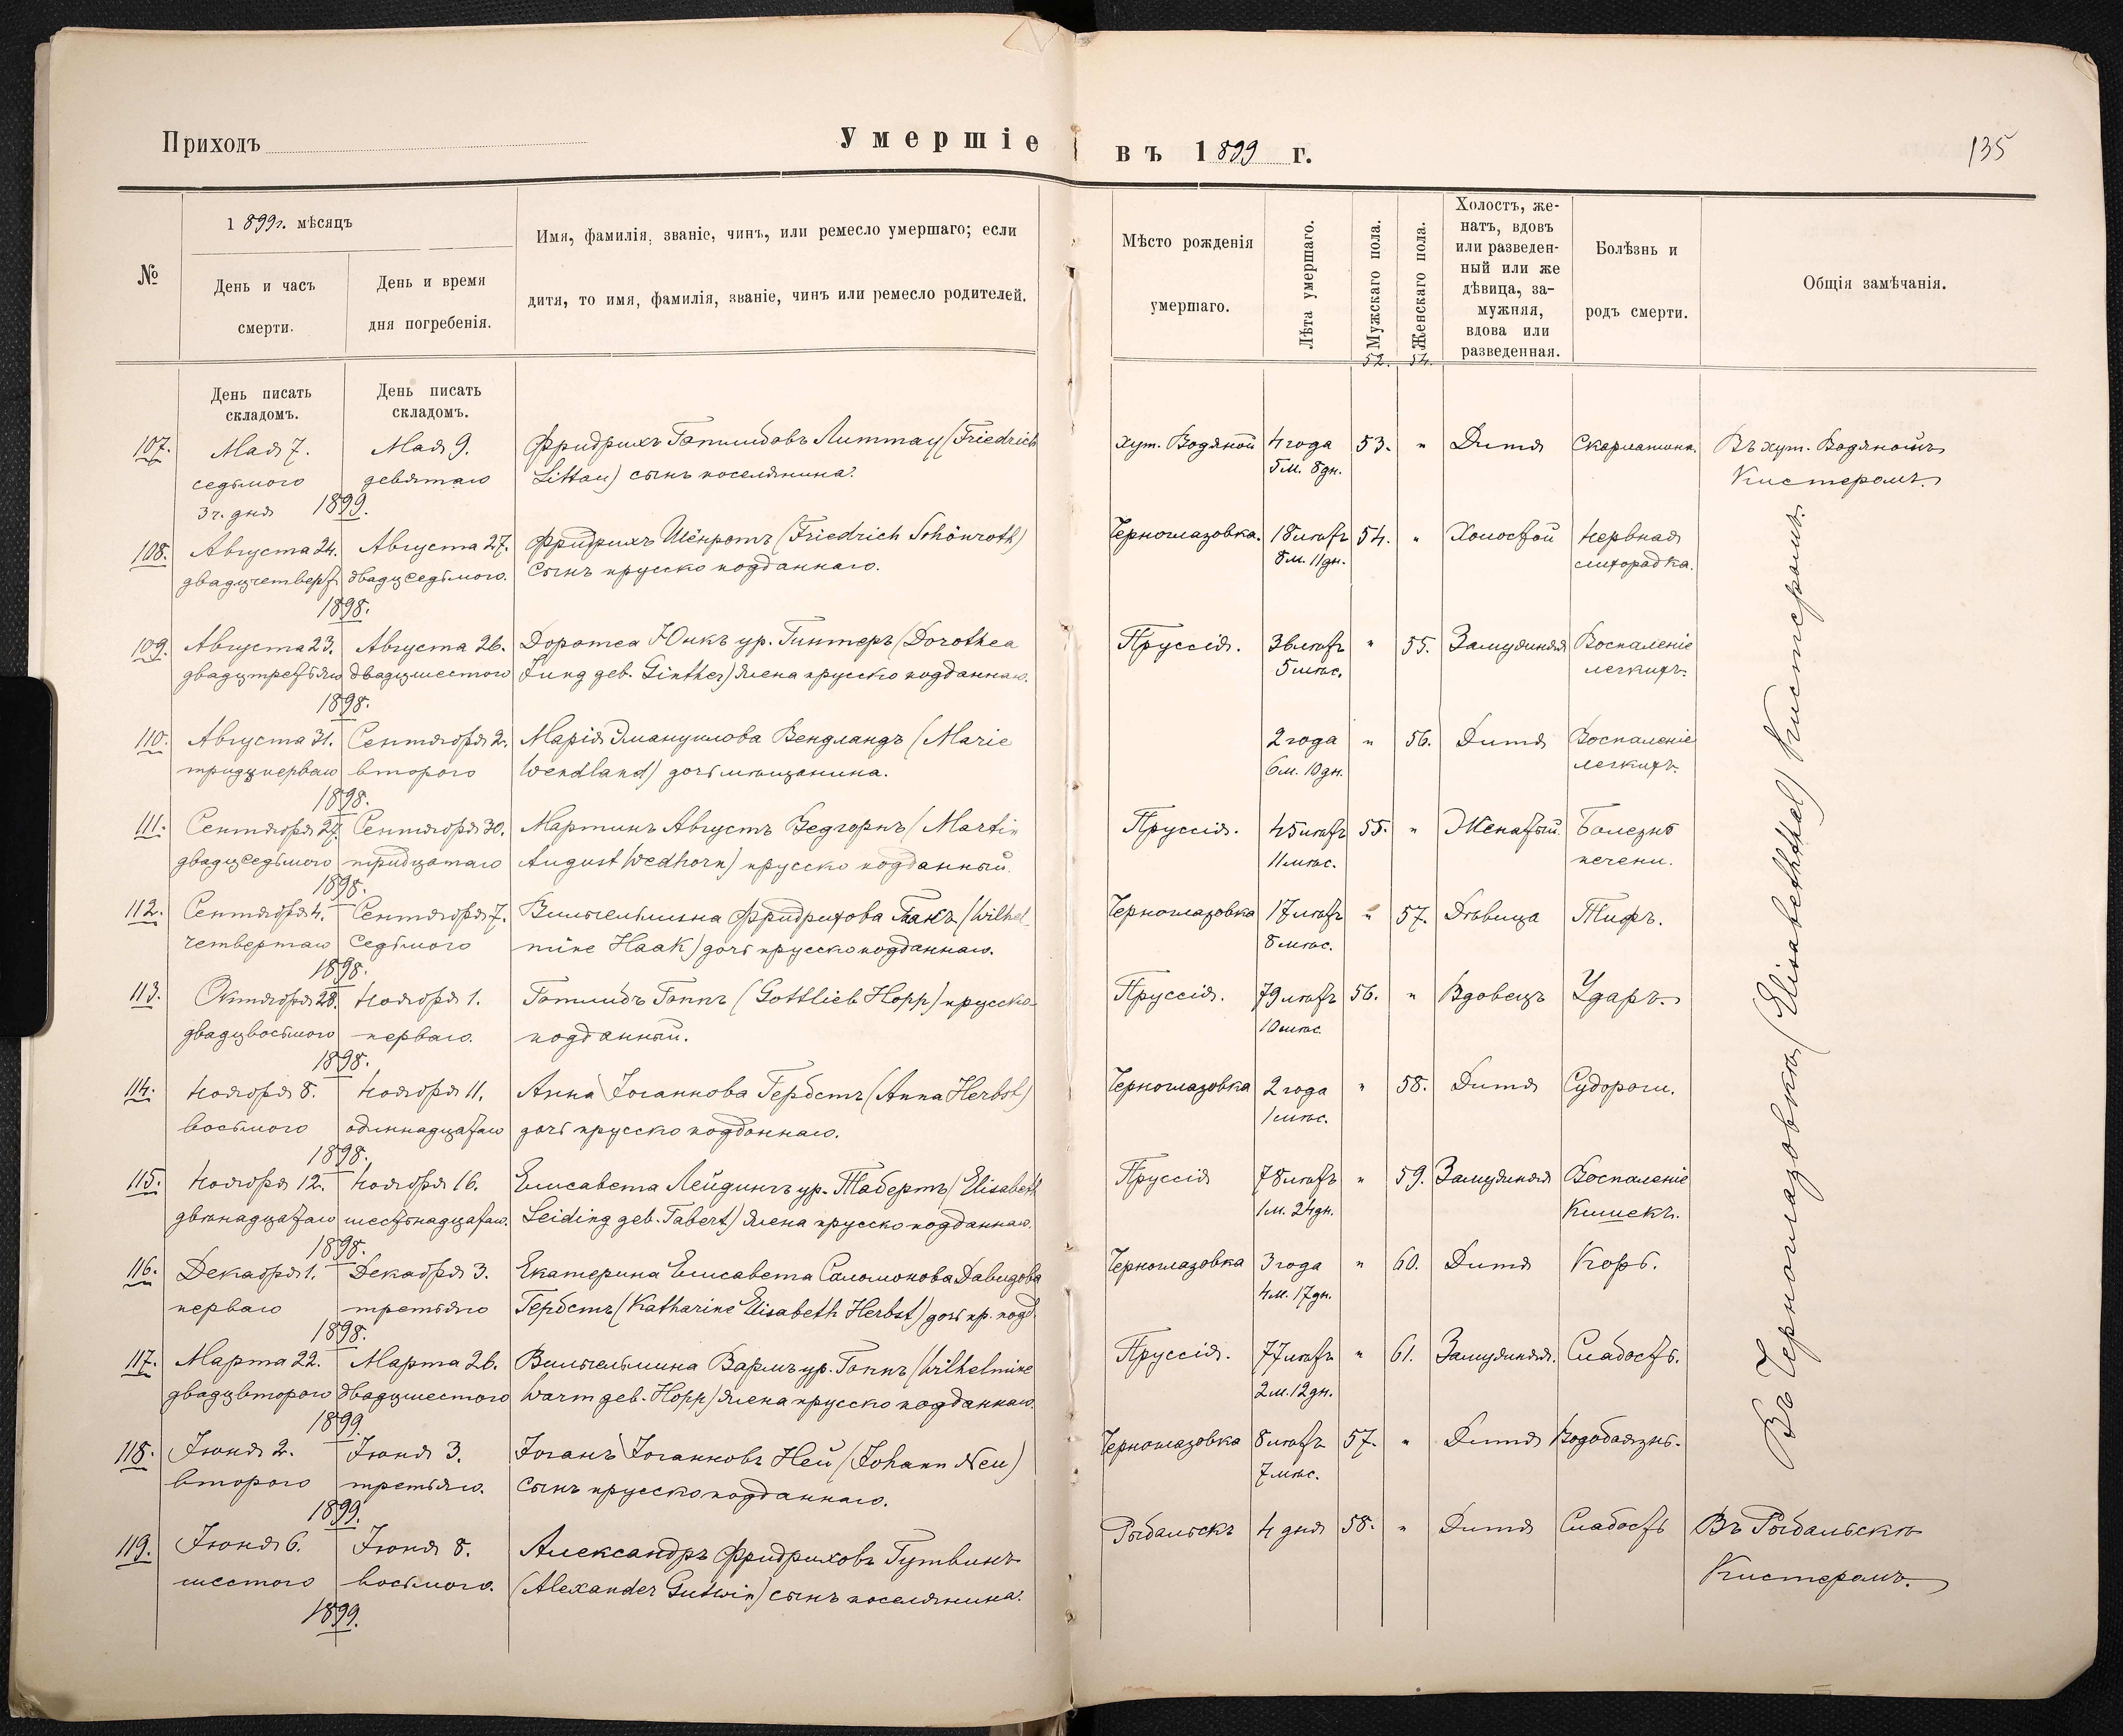 Приходъ
Умершіе въ 1899 г.
135
№
1899г. мѣсяцъ
День и часъ смерти.
День и время дня погребенія.
Имя, фамилія, званіе, чинъ, или ремесло умершаго; если
дитя, то имя, фамилія, званіе, чинъ или ремесло родителей.
Мѣсто рожденія умершаго.
Лѣта умершаго.
Мужскаго пола.
Женскаго пола.
Холостъ, же-
натъ, вдовъ
или разведен-
ный или же
дѣвица, за-
мужняя,
вдова или
разведенная.
Болѣзнь и родъ смерти.
Общія замѣчанія.
52. 54.
День писать складомъ.
День писать складомъ.
107. Мая 7. Мая 9. Фридрихъ Готлибовъ Литтау (Friedrich хут. Водяной 4 года 53. " Дитя Скарлатина. Въ хут. Водяномъ
седьмого девятаго Littau) сынъ поселянина. 5 м. 8 дн. Кистеромъ.
3 ч. дня 1899.
108. Августа 24. Августа 27. Фридрихъ Шёнротъ (Friedrich Schönroth) Черноглазовка. 18 лѣтъ 54. " Холостой Нервная
двадцчетверт двадцседьмого. Сынъ прусско подданнаго. 8 м. 11 дн. лихорадка.
1898.
109. Августа 23. Августа 26. Доротеа Юнкъ ур. Гинтеръ (Dorothea Пруссія. 36 лѣтъ " 55. Замужняя Воспаленіе
двадцтретьяго двадцшестого Jung geb. Ginther) жена прусско подданнаго. 5 мѣс. легкихъ.
1898.
110. Августа 31. Сентября 2. Марія Эмануилова Вендландъ (Marie 2 года " 56. Дитя Воспаленіе
тридцперваго второго Wendland) дочь мѣщанина. 6 м. 10 дн. легкихъ.
1898.
111. Сентября 27. Сентября 30. Мартинъ Августъ Ведгорнъ (Martin Пруссія. 45 лѣтъ 55. " Женатый. Болезнь
двадцседьмого тридцатаго August Wedhorn) прусско подданный. 11 мѣс. печени.
1898.
112. Сентября 4. Сентября 7. Вильгельмина Фридрихова Гакъ (Wilhel- Черноглазовка 17 лѣтъ " 57. Дѣвица Тифъ.
четвертаго седьмого mine Haak) дочь прусско подданнаго. 8 мѣс.
1898.
113. Октября 28. Ноября 1. Готлибъ Гоппъ (Gottlieb Hopp) прусско- Пруссія. 79 лѣтъ 56. " Вдовецъ Ударъ.
двадцвосьмого перваго. подданный. 10 мѣс.
1898.
114. Ноября 8. Ноября 11. Анна Іоганнова Гербстъ (Anna Herbst) Черноглазовка 2 года " 58. Дитя Судороги.
восьмого одиннадцатаго дочь прусско подданнаго. 1 мѣс.
1898.
115. Ноября 12. Ноября 16. Елисавета Лейдингъ ур. Табертъ (Elisabeth Пруссія 78 лѣтъ " 59. Замужняя Воспаленіе
двѣнадцатаго шестьнадцатаго. Leiding geb. Tabert) жена прусско подданнаго. 1 м. 24 дн. Кишекъ.
1898.
116. Декабря 1. Декабря 3. Екатерина Елисавета Саломонова Давидова Черноглазовка 3 года " 60. Дитя Корь.
перваго третьяго Гербстъ (Katharine Elisabeth Herbst) дочь пр. подд. 4 м. 17 дн.
1898.
117. Марта 22. Марта 26. Вильгельмина Вармъ ур. Гоппъ (Wilhelmine Пруссія. 77 лѣтъ " 61. Замужняя. Слабость.
двадцвторого двадцшестого Warm geb. Hopp) жена прусско подданнаго. 2 м. 12 дн.
1899.
118. Іюня 2. Іюня 3. Іоганъ Іоганновъ Ней (Johann Neu) Черноглазовка 8 лѣтъ 57. " Дитя Водобаязнь.
второго третьяго. Сынъ прусско подданнаго. 7 мѣс.
1899.
119. Іюня 6. Іюня 8. Александръ Фридриховъ Гутвинъ Рыбальскъ 4 дня 58. " Дитя Слабость Въ Рыбальскѣ
шестого восьмого. (Alexander Gutwin) сынъ поселянина. Кистеромъ.
1899.
Въ Черноглазовкѣ (Elisabeththal) Кистеромъ.